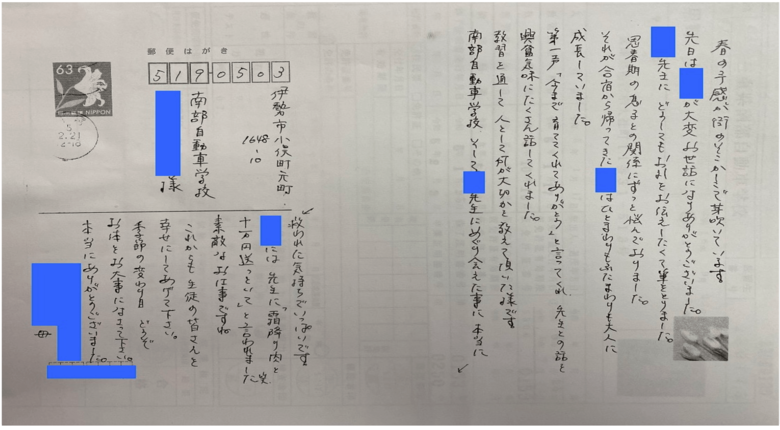 春の予感が街のそこかしこで芽吹いています
先日は が大変お世話になりありがとうございました。
先生に どうしてもお礼をお伝えしたくて筆をとりました。
思春期の息子との関係にずっと悩んでおりました。
それが合宿から帰ってきた はひとまわりもふたまわりも大人に
成長していました。
第一声「今まで育ててくれてありがとう」と言ってくれ 先生との話を
興奮気味にたくさん話してくれました。
教習を通して人として何が大切かを教えて頂いた様です
南部自動車学校 そして 先生にめぐり会えた事に 本当に
郵便はがき
63
NIPPON
2.21
519-0503
伊勢市小俣町元町
1648-10
南部自動車学校
様
救われた気持ちでいっぱいです
には 先生に「霜降り肉と
十万円送っといて」と言われました 笑
素敵なお仕事ですね
これからも生徒の皆さんを
幸せにしてあげて下さい。
季節の変わり目 どうぞ
お体をお大事になさって下さい。
本当にありがとうございました。
母